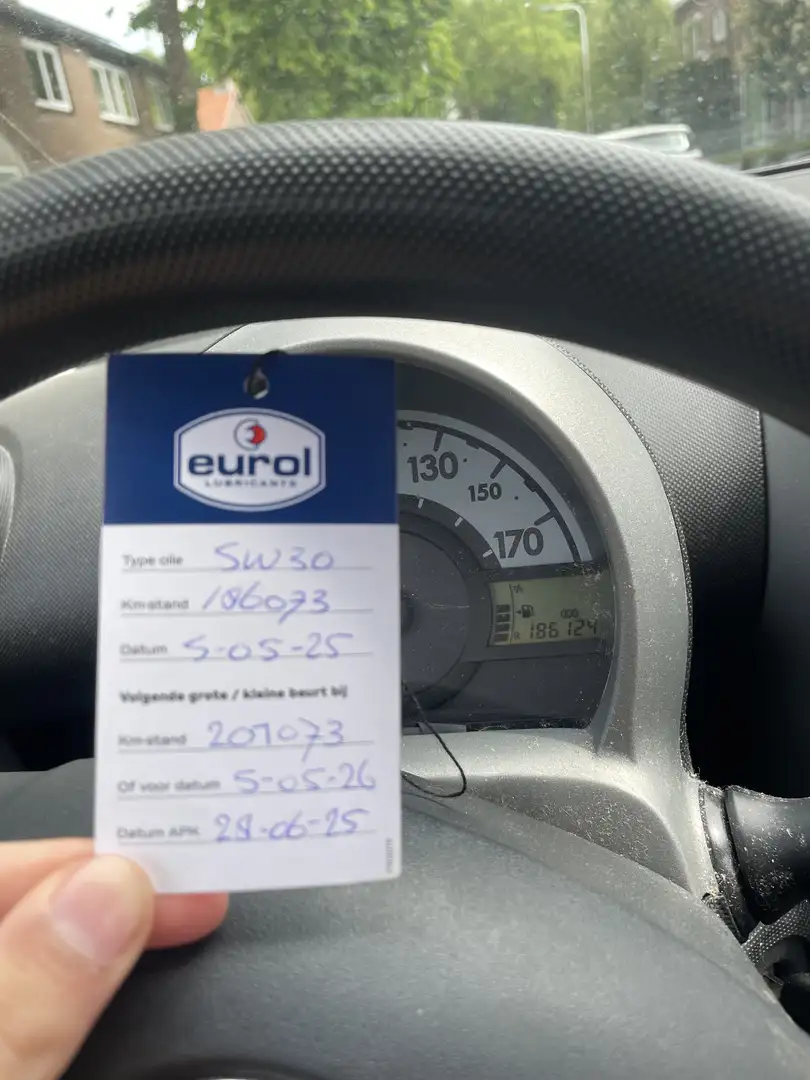 eurol
LUBRICANTS
Type olie 5W30
Km-stand 186073
Datum 5-05-25
Volgende grote / kleine beurt bij
Km-stand 201073
Of voor datum 5-05-26
Datum APK 28-06-25
130
150
170
R 186124